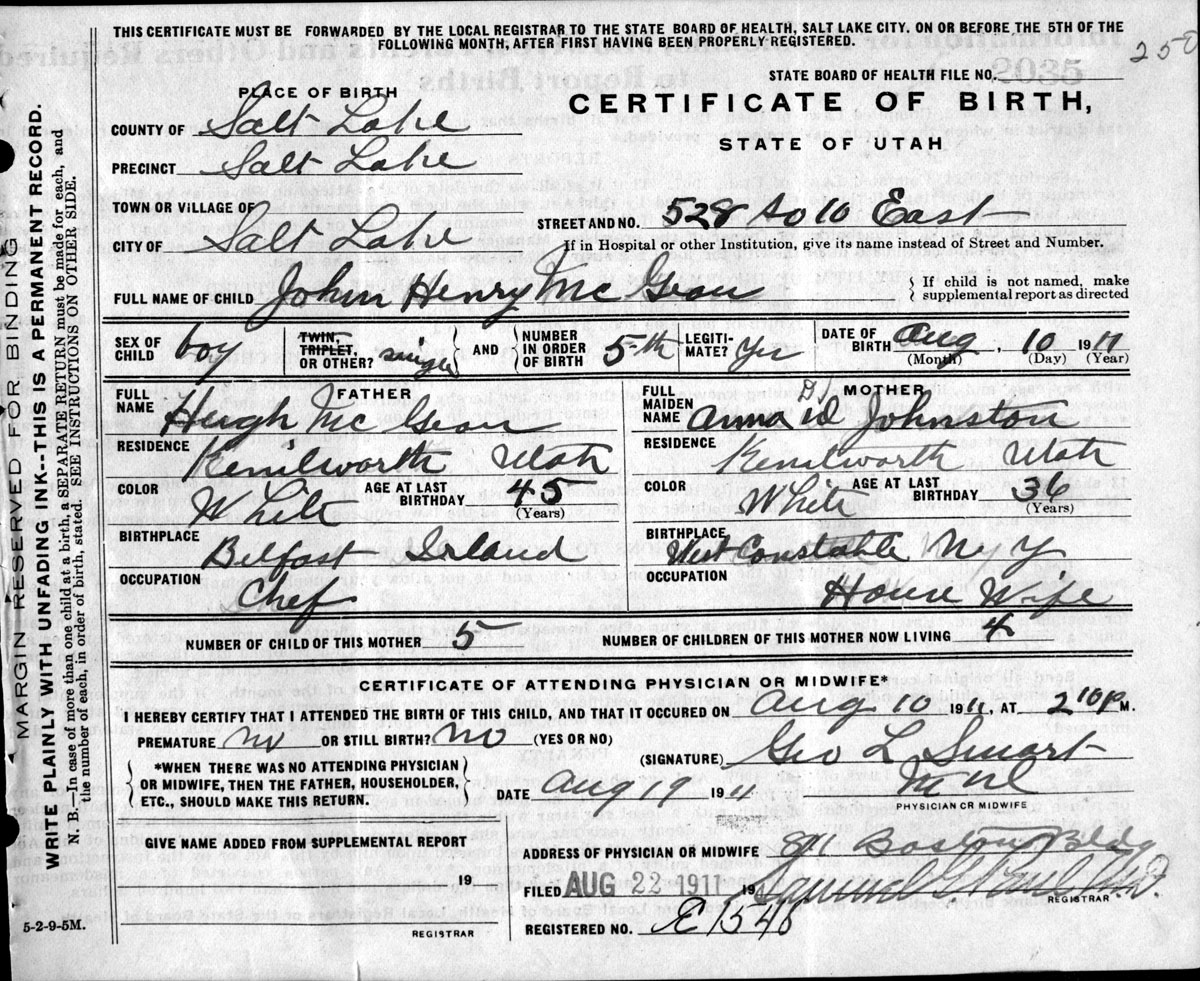 THIS CERTIFICATE MUST BE FORWARDED BY THE LOCAL REGISTRAR TO THE STATE BOARD OF HEALTH, SALT LAKE CITY. ON OR BEFORE THE 5TH OF THE
FOLLOWING MONTH, AFTER FIRST HAVING BEEN PROPERLY REGISTERED.
250
STATE BOARD OF HEALTH FILE NO.
PLACE OF BIRTH
CERTIFICATE OF BIRTH,
STATE OF UTAH
COUNTY OF Salt Lake
PRECINCT Salt Lake
TOWN OR VILLAGE OF
STREET AND NO. 528 So 10 East
CITY OF Salt Lake
If in Hospital or other Institution, give its name instead of Street and Number.
FULL NAME OF CHILD John Henry Mc Gean
If child is not named, make
supplemental report as directed
SEX OF CHILD boy
TWIN, TRIPLET, OR OTHER? single
AND NUMBER IN ORDER OF BIRTH 5-th
LEGITIMATE? Yes
DATE OF BIRTH Aug, 10 1911
(Month) (Day) (Year)
FATHER
FULL NAME Hugh Mc Gean
RESIDENCE Kenilworth Utah
COLOR White AGE AT LAST BIRTHDAY 45 (Years)
BIRTHPLACE Belfast Irland
OCCUPATION Chef
MOTHER
FULL MAIDEN NAME Anna D. Johnston
RESIDENCE Kenilworth Utah
COLOR White AGE AT LAST BIRTHDAY 36 (Years)
BIRTHPLACE West Constable N y
OCCUPATION House Wife
NUMBER OF CHILD OF THIS MOTHER 5 NUMBER OF CHILDREN OF THIS MOTHER NOW LIVING 4
CERTIFICATE OF ATTENDING PHYSICIAN OR MIDWIFE*
I HEREBY CERTIFY THAT I ATTENDED THE BIRTH OF THIS CHILD, AND THAT IT OCCURED ON Aug 10 1911, AT 2 10 P M.
PREMATURE no OR STILL BIRTH? no (YES OR NO)
(SIGNATURE) Geo L Smart
*WHEN THERE WAS NO ATTENDING PHYSICIAN
OR MIDWIFE, THEN THE FATHER, HOUSEHOLDER,
ETC., SHOULD MAKE THIS RETURN.
DATE Aug 19 1911
PHYSICIAN OR MIDWIFE
GIVE NAME ADDED FROM SUPPLEMENTAL REPORT
19
REGISTRAR
ADDRESS OF PHYSICIAN OR MIDWIFE 811 Boston Bldg
FILED AUG 22 1911 19 Samuel G. Paul M.D.
REGISTRAR
REGISTERED NO. E1546
5-2-9-5M.
MARGIN RESERVED FOR BINDING
WRITE PLAINLY WITH UNFADING INK--THIS IS A PERMANENT RECORD.
N. B.—In case of more than one child at a birth, a SEPARATE RETURN must be made for each, and
the number of each, in order of birth, stated. SEE INSTRUCTIONS ON OTHER SIDE.